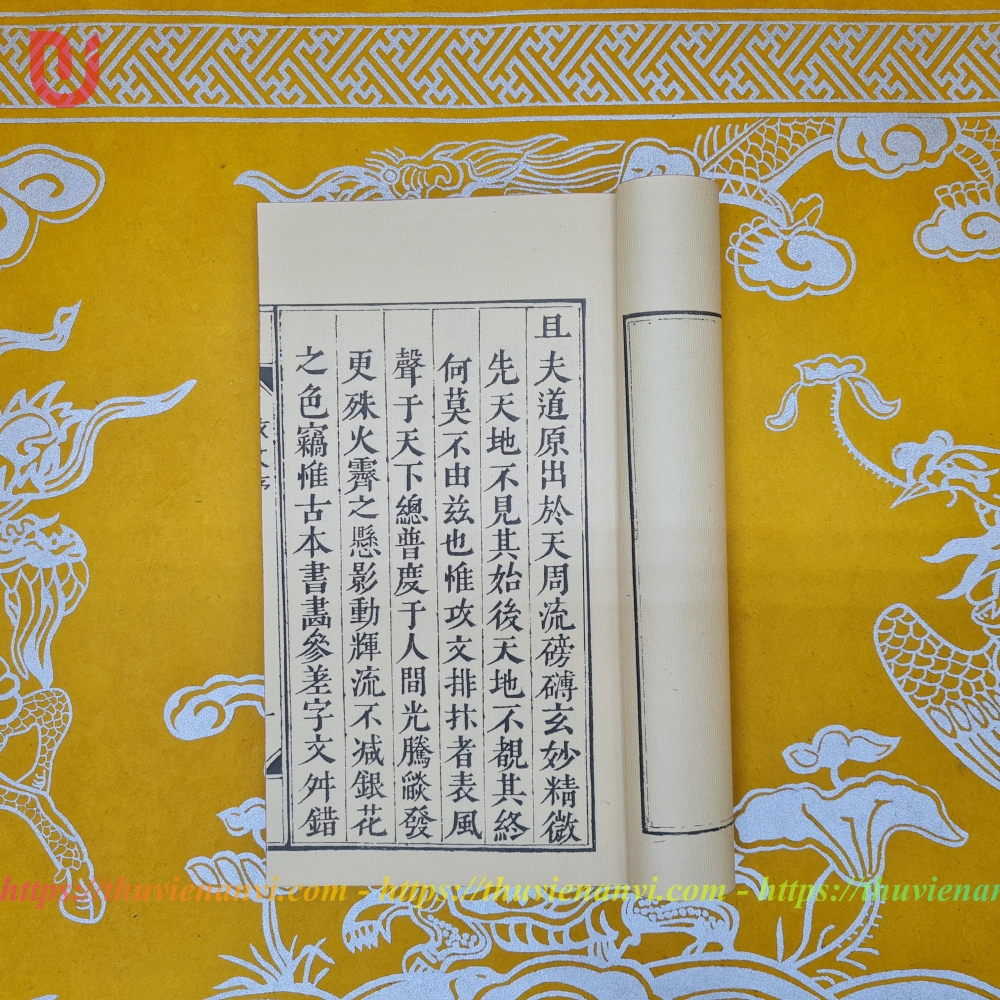 且夫道原出於天周流磅礴玄妙精微
先天地不見其始後天地不覩其終
何莫不由茲也惟攻文排抃者表風
聲于天下總普度于人間光騰燄發
更殊火霽之懸影動輝流不减銀花
之色竊惟古本書畵參差字文舛錯
https://thuvienanvi.com - https://thuvienanvi.com - https://thuvienan